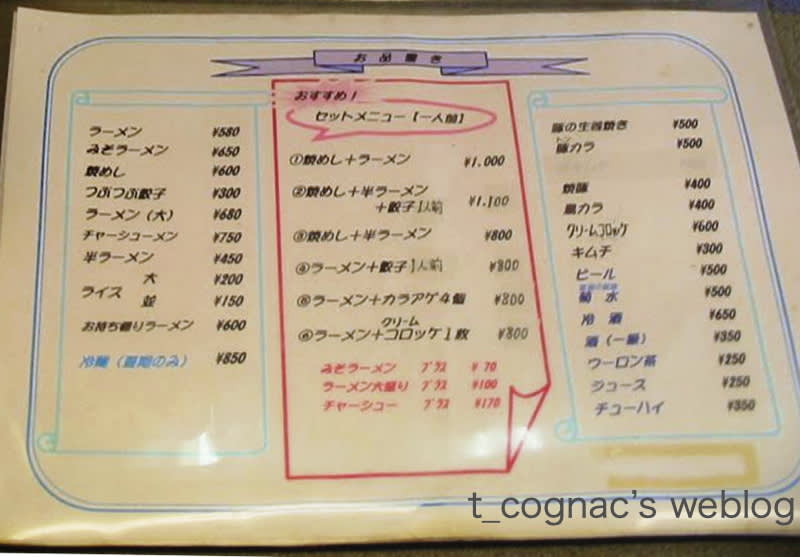 お品書き
ラーメン ¥580
みそラーメン ¥650
焼めし ¥600
つぶつぶ餃子 ¥300
ラーメン（大） ¥680
チャーシューメン ¥750
半ラーメン ¥450
ライス 大 ¥200
並 ¥150
お持ち帰りラーメン ¥600
冷麺（夏期のみ） ¥850
おすすめ！
セットメニュー【一人前】
①焼めし＋ラーメン ¥1.000
②焼めし＋半ラーメン
＋餃子1人前 ¥1.100
③焼めし＋半ラーメン ¥800
④ラーメン＋餃子1人前 ¥800
⑤ラーメン＋カラアゲ4個 ¥800
クリーム
⑥ラーメン＋コロッケ1枚 ¥800
みそラーメン プラス ¥ 70
ラーメン大盛り プラス ¥100
チャーシュー プラス ¥170
豚の生姜焼き ¥500
トン
豚カラ ¥500
焼豚 ¥400
鳥カラ ¥400
クリームコロッケ ¥600
キムチ ¥300
ビール ¥500
菊水 ¥500
冷酒 ¥650
酒（一級） ¥350
ウーロン茶 ¥250
ジュース ¥250
チューハイ ¥350
t_cognac's weblog